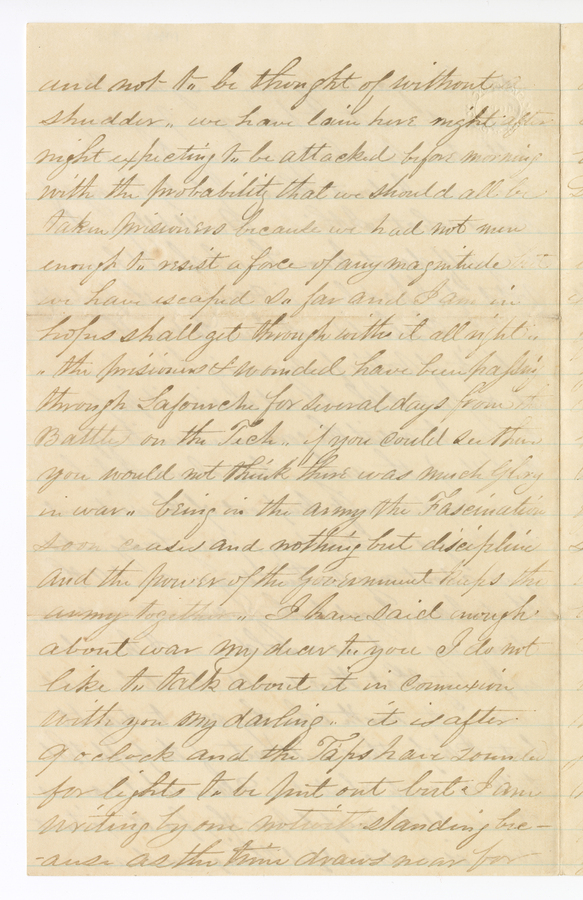 and not to be thought of without
shudder,, we have lain here night after
night expecting to be attacked before morning
with the probability that we should all be
taken prisioners because we had not men
enough to resist a force of any magnitude but
we have escaped so far and I am in
hopes shall get through with it all right ,,
,, the prisioners & wounded have been passing
through Lafourche for several days from the
Battles on the Tech,, if you could see them
you would not think there was much Glory
in war,, being in the army the Fascination
soon ceases and nothing but discipline
and the power of the Government keeps the
army together ,, I have said enough
about war my dear to you I do not
like to talk about it in connexion
with you my darling,, it is after
9 oclock and the Taps have sounded
for lights to be put out but I am
writing by one notwithstanding bec-
-ause as the time draws near for